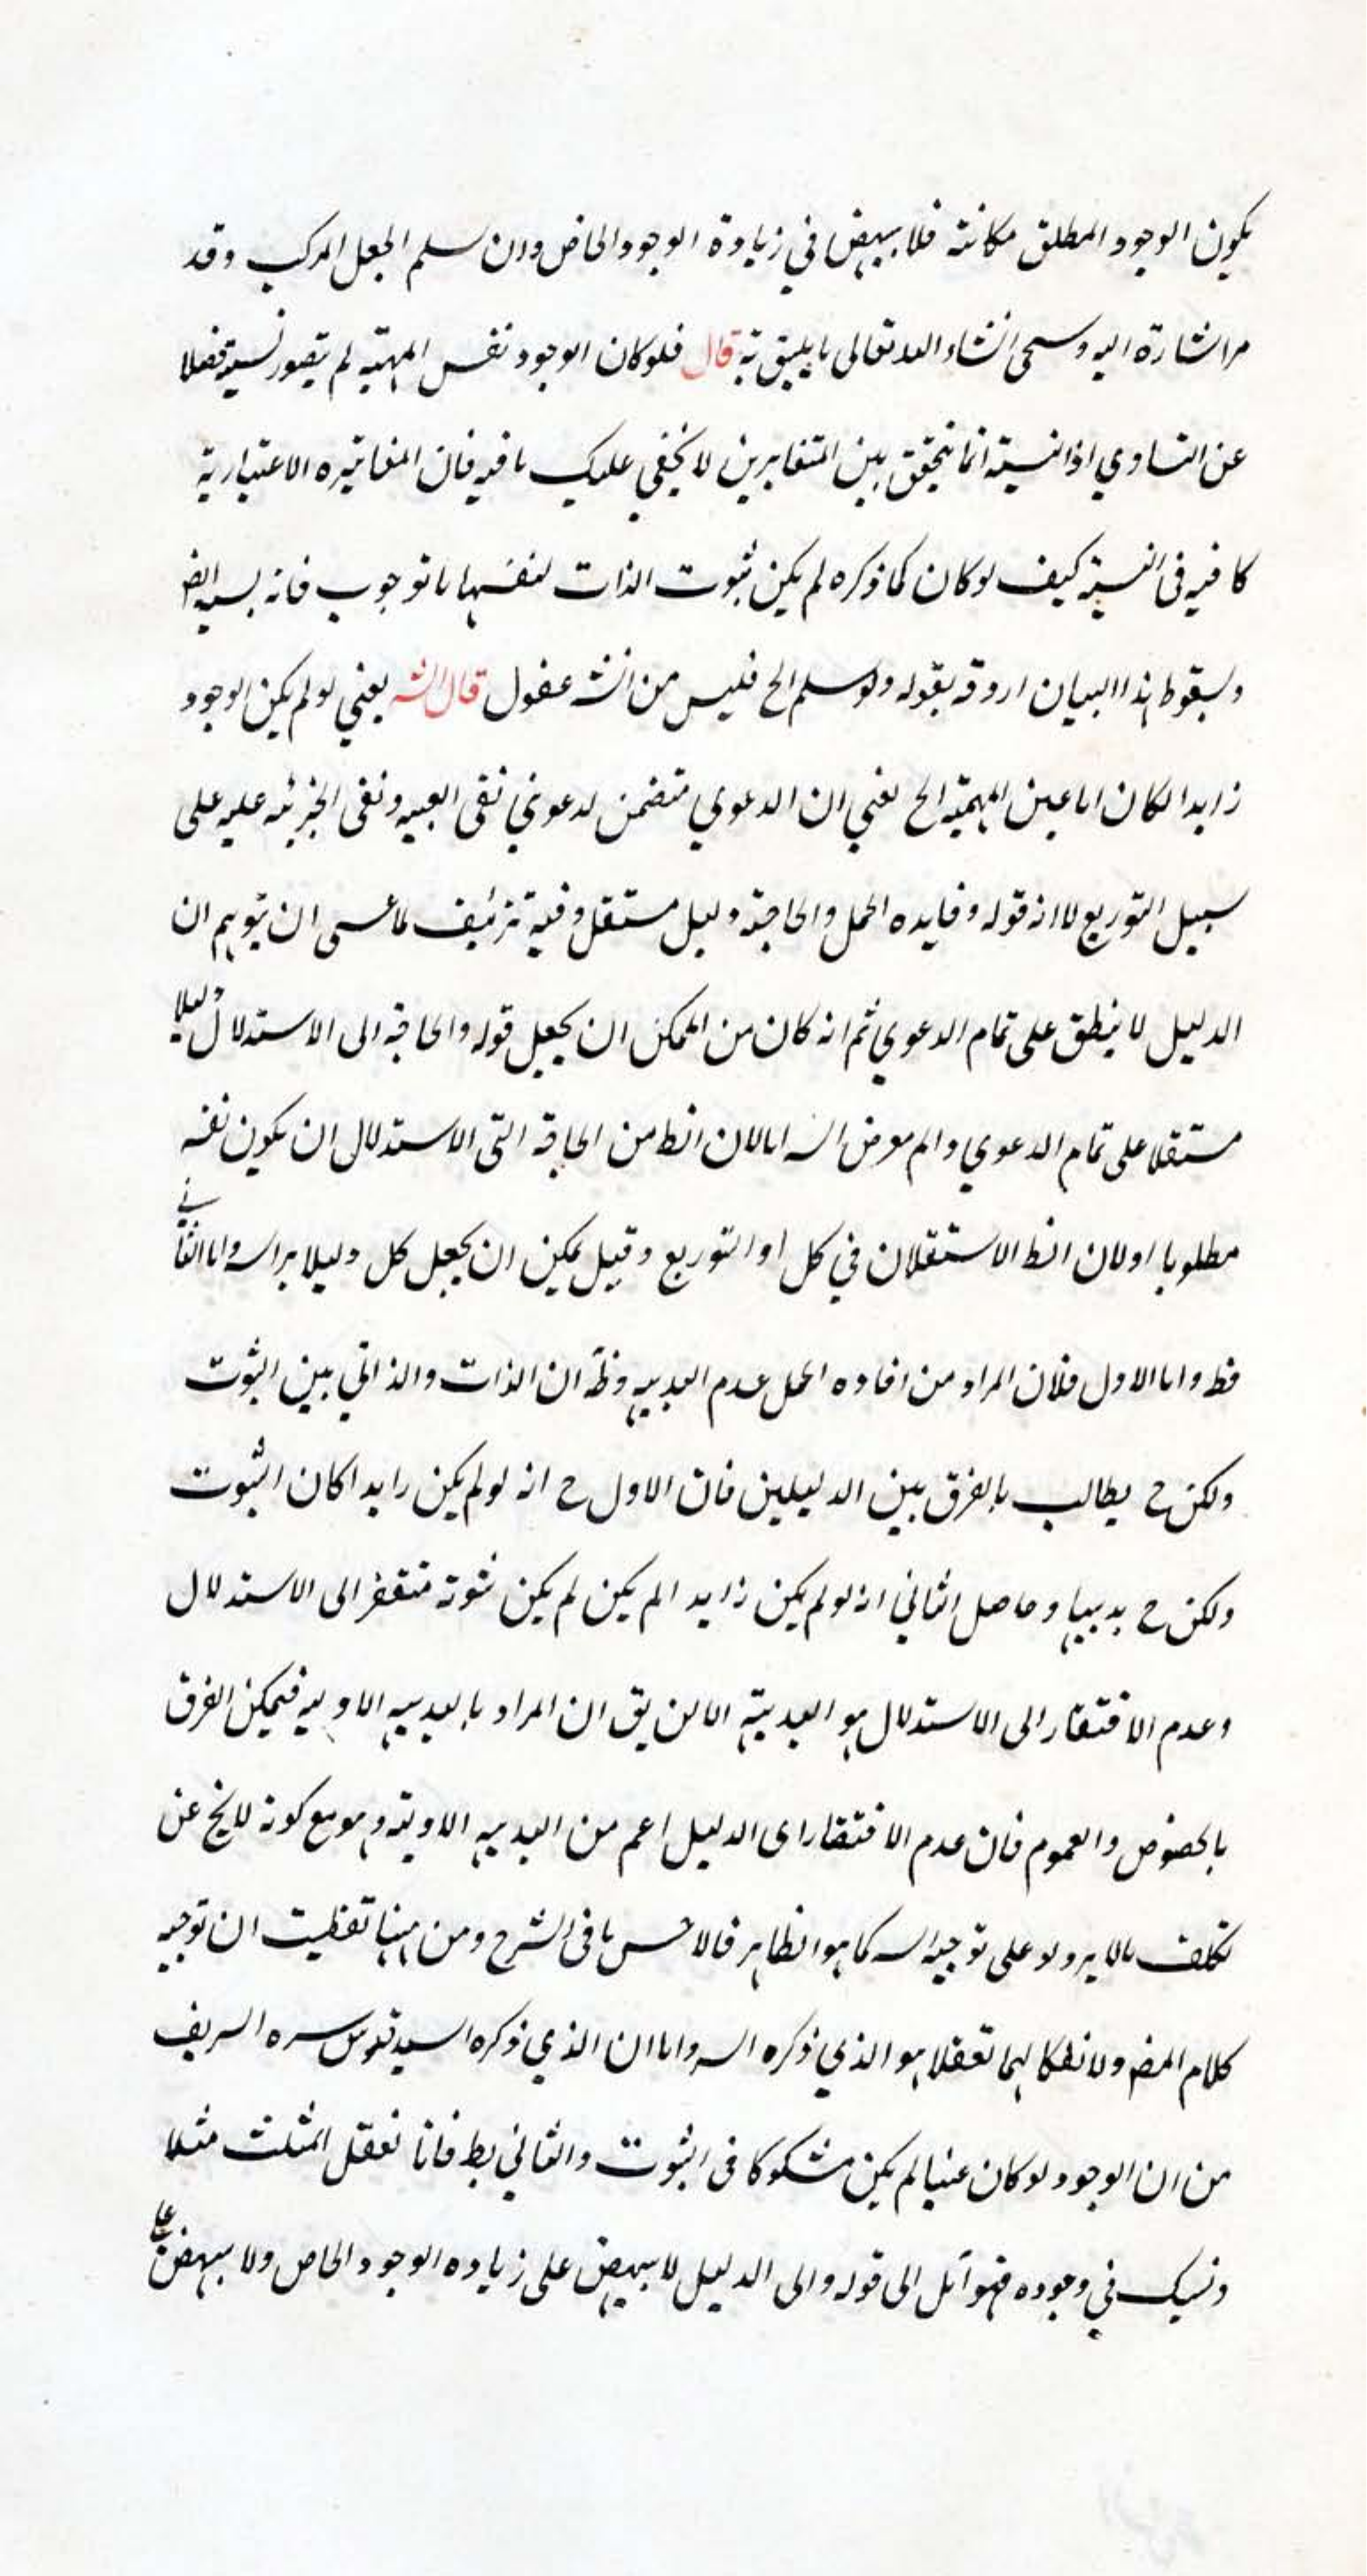 يكون الوجود المطلق مكانته فلا ينهض في زيادة الوجود الخاص وان سلم الجعل المركب وقد
مر اشارة اليه وسيجئ انشاء الله تعالى ما يليق به قال فلو كان الوجود نفس المهية لم يتصور نسبة فضلا
عن التساوي اذ النسبة انما يتحقق بين المتغايرين لا يخفى عليك ما فيه فان المغايره الاعتبارية
كافيه فى النسبة كيف لو كان كما ذكره لم يكن ثبوت الذات لنفسها بالوجوب فانه نسبة ايض
وبسقوط هذا البيان اردفه بقوله ولو سلم الخ فليس من الش غفول قال الش يعني لو لم يكن الوجود
زايدا لكان اما عين المهية الخ يعني ان الدعوي متضمن لدعوي نفى العينيه ونفى الجزئيه عليه على
سبيل التوزيع لا ان قوله وفايده الحمل والحاجة دليل مستقل وفيه تزئيف لما عسى ان يتوهم ان
الدليل لا ينطق على تمام الدعوي ثم انه كان من الممكن ان يجعل قوله والحاجه الى الاستدلال دليلا
مستقلا على تمام الدعوي والم معرض الش اما لان الظ من الحاجه التى الاستدلال ان يكون نفسه
مطلوبا او لان الظ الاستقلال في كل او التوزيع وقيل يمكن ان يجعل كل دليلا براسه واما الثاني
فظ واما الاول فلان المراد من افاده الحمل عدم البديهيه وظه ان الذات والذاتي بين الثبوت
ولكن ح يطالب بالفرق بين الدليلين فان الاول ح انه لو لم يكن زايدا كان الثبوت
ولكن ح بديهيا وحاصل الثاني انه لو لم يكن زايدا لم يكن لم يكن ثبوته مفتقرا الى الاستدلال
وعدم الافتقار الى الاستدلال هو البديهية الا ان يق ان المراد بالبديهيه الاوليه فيمكن الفرق
بالخصوص والعموم فان عدم الافتقار اى الدليل اعم من البديهيه الاوليه وهو مع كونه لا يخ عن
تكلف مالا يرد ولو على توجيه الش كما هو الظاهر فالاحسن ما فى الشرح ومن هنا تفطنت ان توجيه
كلام المص ولانفكاكهما تعقلا هو الذي ذكره الش واما ان الذي ذكره السيد قدس سره الشريف
من ان الوجود لو كان عينا لم يكن مشكوكا فى الثبوت والثاني بط فانا نعقل المثلث مثلا
ونشك في وجوده فهو آئل الى قوله والى الدليل لا ينهض على زياده الوجود الخاص ولا ينهض على